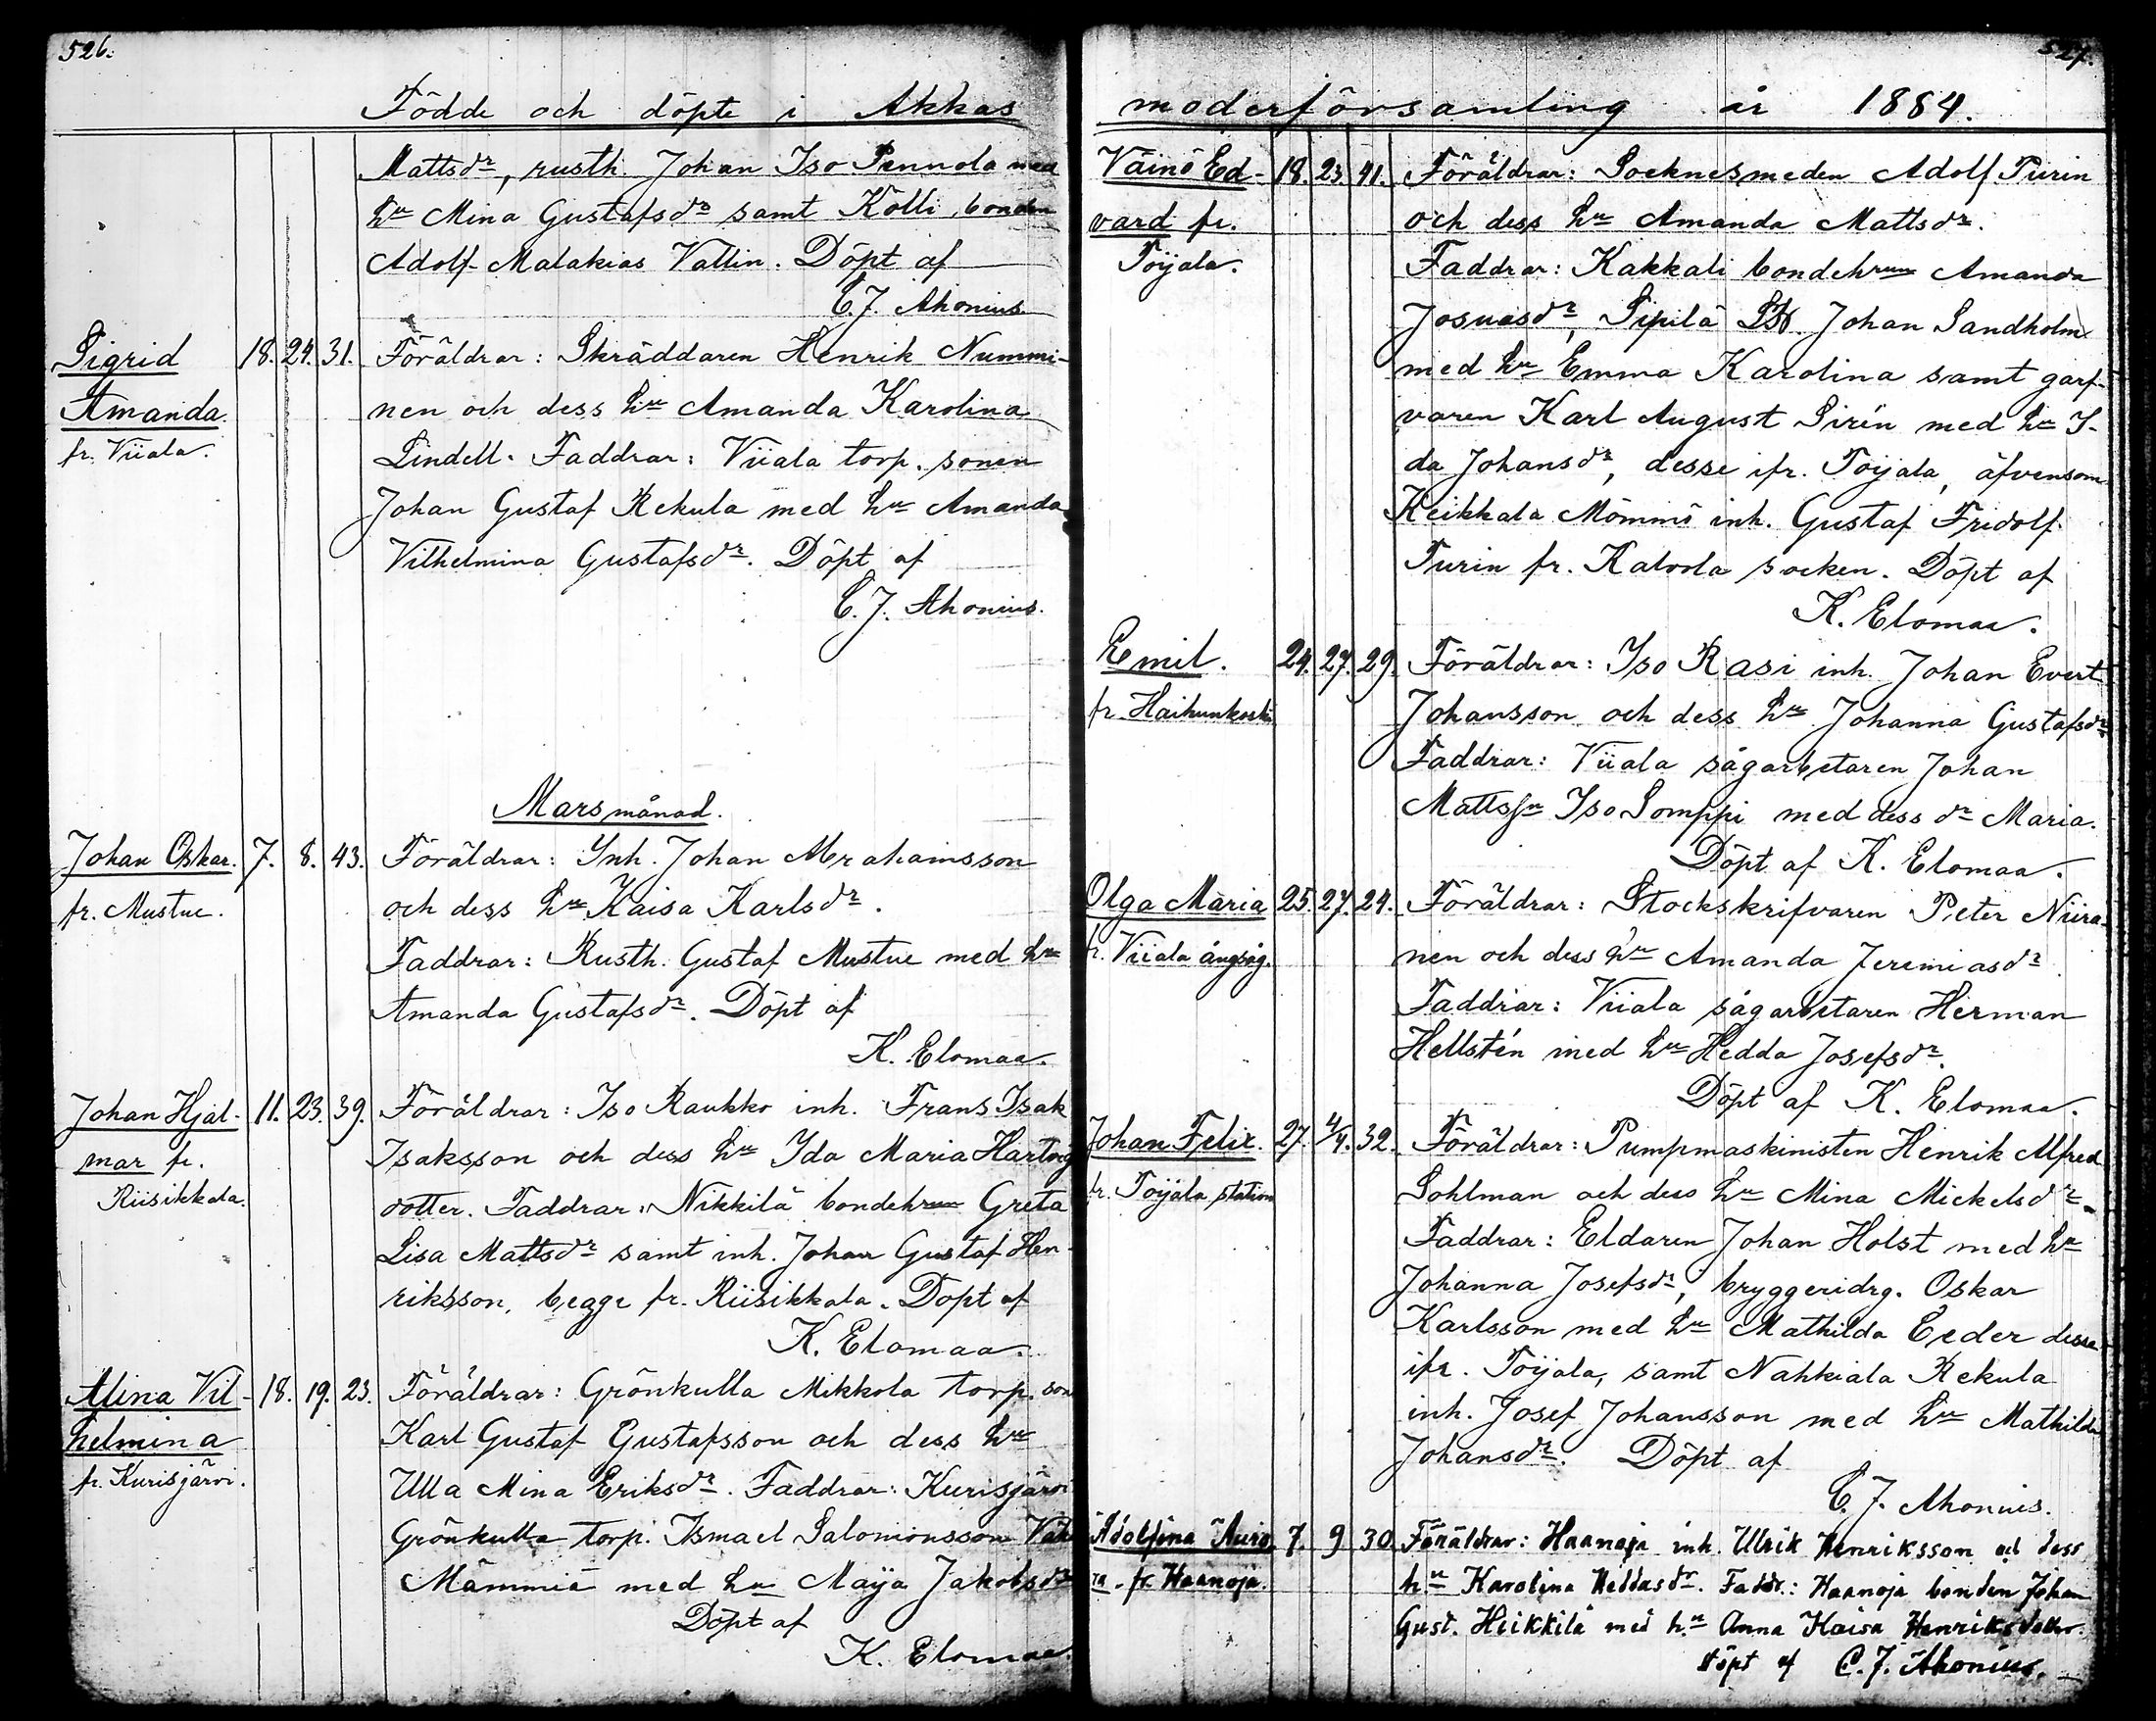 526.
Födde och döpte i Akkas
Mattsdr, rusth. Johan Iso Pennola med
hu Mina Gustafsdr samt Kölli bonden
Adolf Malakias Vallin. Döpt af
C. J. Ahonius.
Sigrid Amanda fr. Viiala. 18. 24. 31. Föräldrar: Skräddaren Henrik Nummi-
nen och dess hu Amanda Karolina
Lindell. Faddrar: Viiala torp. sonen
Johan Gustaf Rekula med hu Amanda
Vilhelmina Gustafsdr. Döpt af
C. J. Ahonius.
Mars månad.
Johan Oskar. fr. Mustue. 7. 8. 43. Föräldrar: Inh. Johan Abrahamsson
och dess hu Kaisa Karlsdr.
Faddrar: Rusth. Gustaf Mustue med hu
Amanda Gustafsdr. Döpt af
K. Elomaa.
Johan Hjal- mar fr. Riisikkala. 11. 23. 39. Föräldrar: Iso Raukko inh. Frans Isak
Isaksson och dess hu Ida Maria Hartvig
dotter. Faddrar: Nikkilä bondehrun Greta
Lisa Mattsdr samt inh. Johan Gustaf Hen-
riksson, begge fr. Riisikkala. Döpt af
K. Elomaa.
Alina Vil- helmina fr. Kurisjärvi. 18. 19. 23. Föräldrar: Grönkulla Mikkola torp. son
Karl Gustaf Gustafsson och dess hu
Ulla Mina Eriksdr. Faddrar: Kurisjärvi
Grönkulla torp. Ismael Salomonsson
Mämmiä med hu Maija Jakobsdr
Döpt af
K. Elomaa.
527.
moderförsamling år 1884.
Väinö Ed- vard fr. Toijala. 18. 23. 41. Föräldrar: Socknesmeden Adolf Turin
och dess hu Amanda Mattsdr.
Faddrar: Kakkali bondehrun Amanda
Josuasdr, Sipilä Johan Sandholm
med hu Emma Karolina samt garf-
varen Karl August Sirén med hu I-
da Johansdr, desse ifr. Toijala, äfvensom
Keikkala Mömmö inh. Gustaf Fridolf
Turin fr. Kalvola socken. Döpt af
K. Elomaa.
Emil. fr. Haihunkoski 24. 27. 29. Föräldrar: Iso Rasi inh. Johan Evert
Johansson och dess hu Johanna Gustafsdr
Faddrar: Viiala sågarbetaren Johan
Mattssn Iso Somppi med dess dr Maria.
Döpt af K. Elomaa.
Olga Maria fr. Viiala ångsåg. 25. 27. 24. Föräldrar: Stockskrifvaren Peter Niira-
nen och dess hu Amanda Jeremiasdr
Faddrar: Viiala sågarbetaren Herman
Hellstén med hu Hedda Josefsdr.
Döpt af K. Elomaa.
Johan Felix. fr. Toijala station 27. 4/4. 32. Föräldrar: Pumpmaskinisten Henrik Alfred
Sohlman och dess hu Mina Mickelsdr.
Faddrar: Eldaren Johan Holst med hu
Johanna Josefsdr, bryggeridrg. Oskar
Karlsson med hu Mathilda Ceder desse
ifr. Toijala, samt Nahkiala Rekula
inh. Josef Johansson med hu Mathilda
Johansdr. Döpt af
C. J. Ahonius.
Adolfina Auro- ra. fr. Haanoja. 7. 9 30. Föräldrar: Haanoja inh. Ulrik Henriksson och dess
hu Karolina Heddasdr. Faddr.: Haanoja bonden Johan
Gust. Heikkilä med hu Anna Kaisa Henriksdotter.
Döpt af C. J. Ahonius.